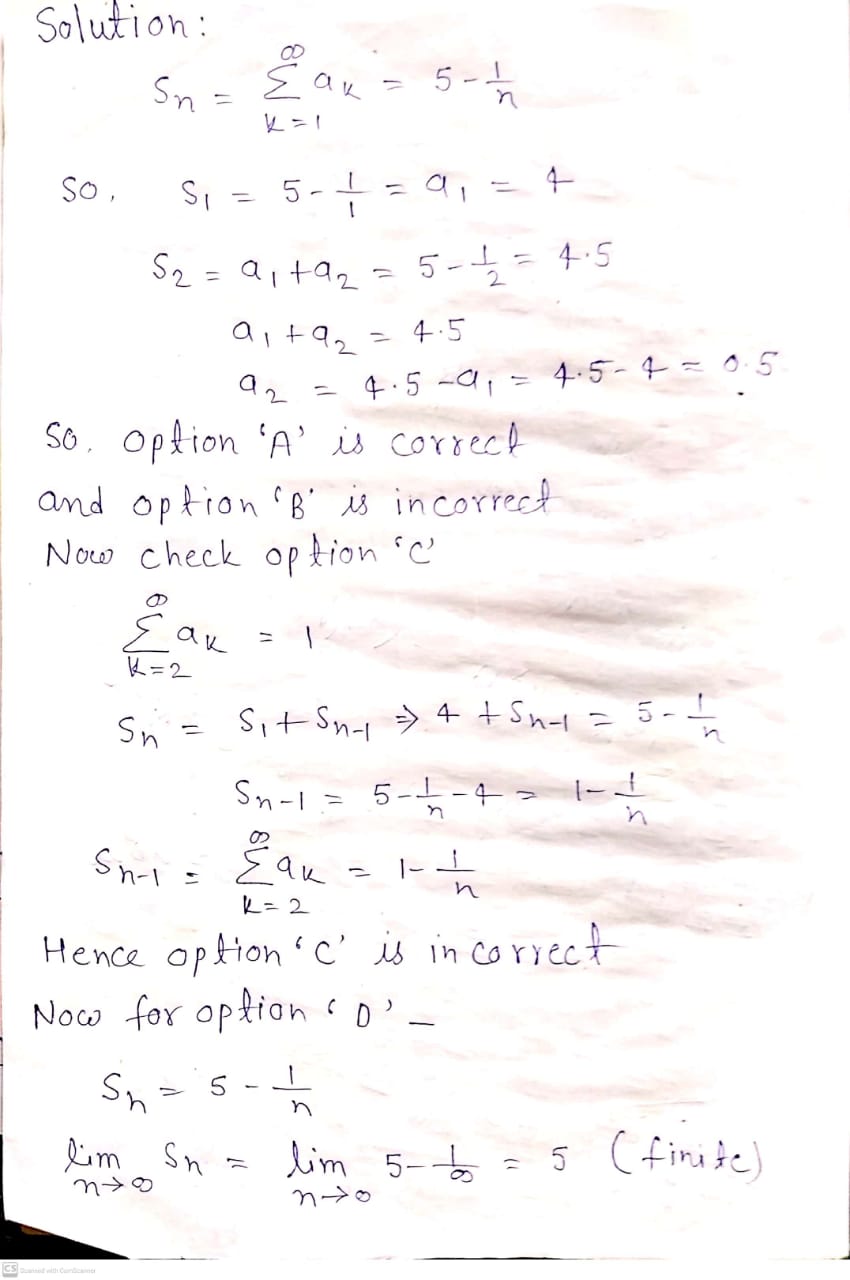 Solution:
Sn = ∞ Σ k=1 ak = 5 - 1/n
So, S1 = 5 - 1/1 = a1 = 4
S2 = a1 + a2 = 5 - 1/2 = 4.5
a1 + a2 = 4.5
a2 = 4.5 - a1 = 4.5 - 4 = 0.5
So, option 'A' is correct
and option 'B' is incorrect
Now check option 'C'
∞ Σ k=2 ak = 1
Sn = S1 + Sn-1 ⇒ 4 + Sn-1 = 5 - 1/n
Sn-1 = 5 - 1/n - 4 = 1 - 1/n
Sn-1 = ∞ Σ k=2 ak = 1 - 1/n
Hence option 'C' is incorrect
Now for option 'D' —
Sn = 5 - 1/n
lim n→∞ Sn = lim n→∞ 5 - 1/∞ = 5 (finite)
CS Scanned with CamScanner